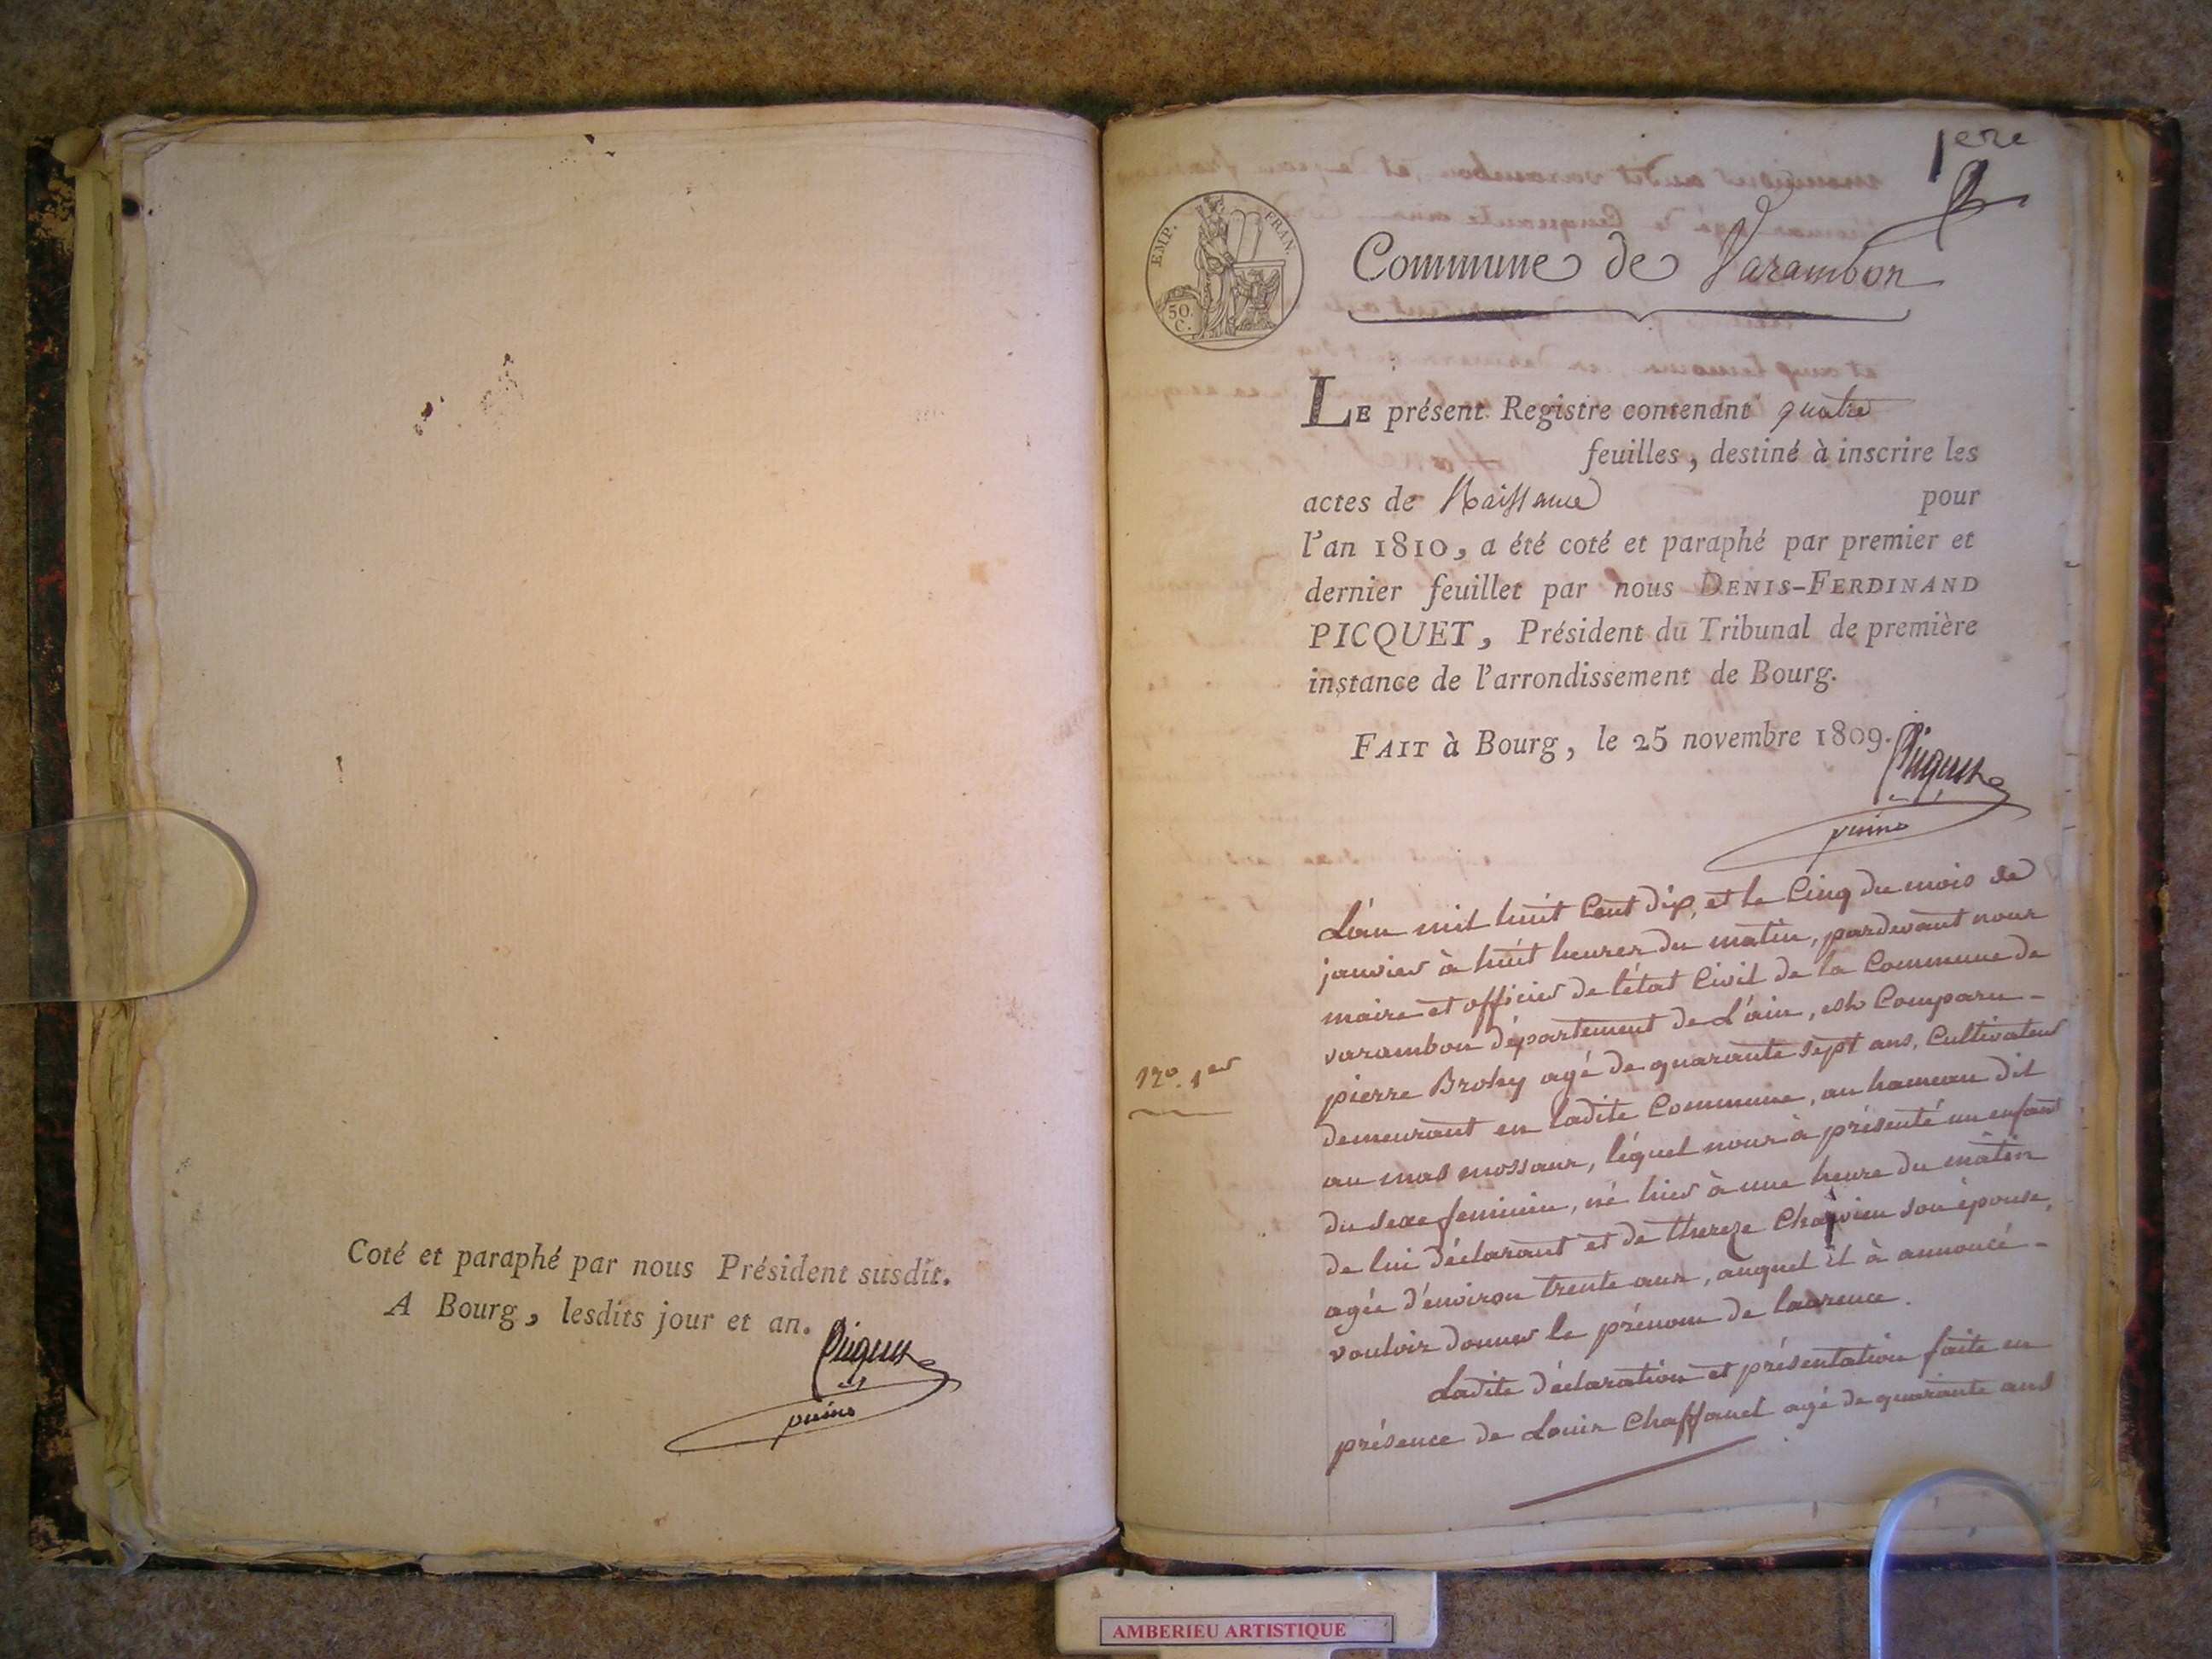 Coté et paraphé par nous Président susdit.
A Bourg, lesdits jour et an.
Picquet
1ere
EMP. FRAN.
50.
C.
Commune de Varambon
LE présent Registre contenant quatre
feuilles, destiné à inscrire les
actes de Naissance pour
l'an 1810, a été coté et paraphé par premier et
dernier feuillet par nous DENIS-FERDINAND
PICQUET, Président du Tribunal de première
instance de l'arrondissement de Bourg.
FAIT à Bourg, le 25 novembre 1809.
Picquet
L'an mil huit Cent dix, et le Cinq du mois de
janvier à huit heures du matin, pardevant nous
maire et officier de l'état Civil de la Commune de
varambon département de L'ain, est Comparu
No. 1er
pierre Brohy agé de quarante sept ans, Cultivateur
demeurant en ladite Commune, au hameau dit
au mas mossaux, léquel nous à présenté un enfant
du sexe feminin, né hier à une heure du matin
de lui déclarant et de thereze son épouse,
agée d'environ trente ans, auquel il à annoncé
vouloir donner le prénom de laurence.
Ladite déclaration et présentation faite en
présence de Louis Chaffanel agé de quarante ans
AMBERIEU ARTISTIQUE